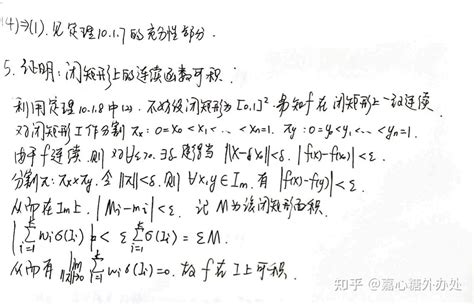 (4)⇒(1). 见定理10.1.7的充分性部分.
5. 证明: 闭矩形上的连续函数可积.
利用定理10.1.8中(4). 不妨设闭矩形为[0,1]². 易知f在闭矩形上一致连续
对闭矩形I作分割 πx: 0=x₀<x₁<…<xn=1. πy: 0=y₀<y₁<…<yn=1.
由于f连续, 则对∀ε>0, ∃δ 使得当 ||X-X₀||<δ, |f(x)-f(x₀)|<ε.
分割π: πx×πy. 令||π||<δ. 则 ∀x,y∈Im, 有 |f(x)-f(y)|<ε.
从而在Im上, |Mi-mi|<ε. 记M为该闭矩形面积.
|∑ᵢ₌₁ᵏ wiσ(Ii)| < ε∑ᵢ₌₁ᵏσ(Ii) = εM.
从而有 lim ||π||→0 ∑ᵢ₌₁ᵏ wiσ(Ii)=0. 故f在I上可积.
知乎 @嘉心糖外办处